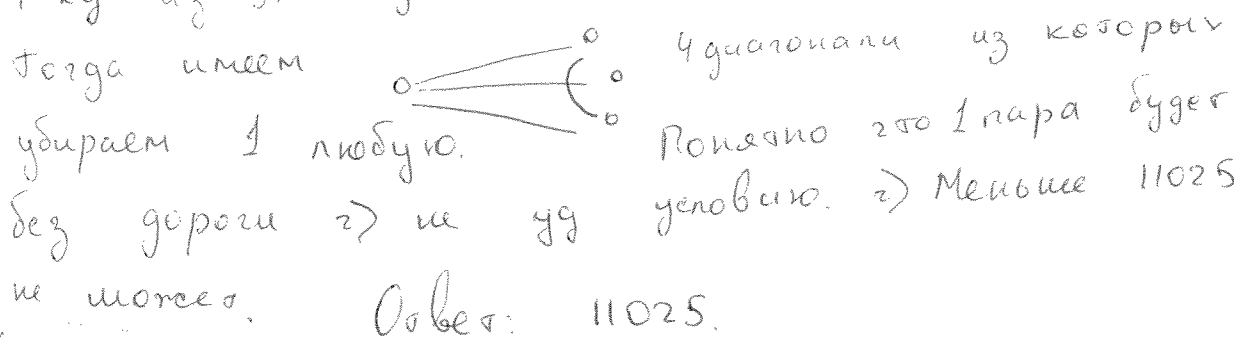 Тогда имеем 4 диагонали из которых
убираем 1 любую. Понятно что 1 пара будет
без дороги => не уд условию. => Меньше 11025
не может. Ответ: 11025.